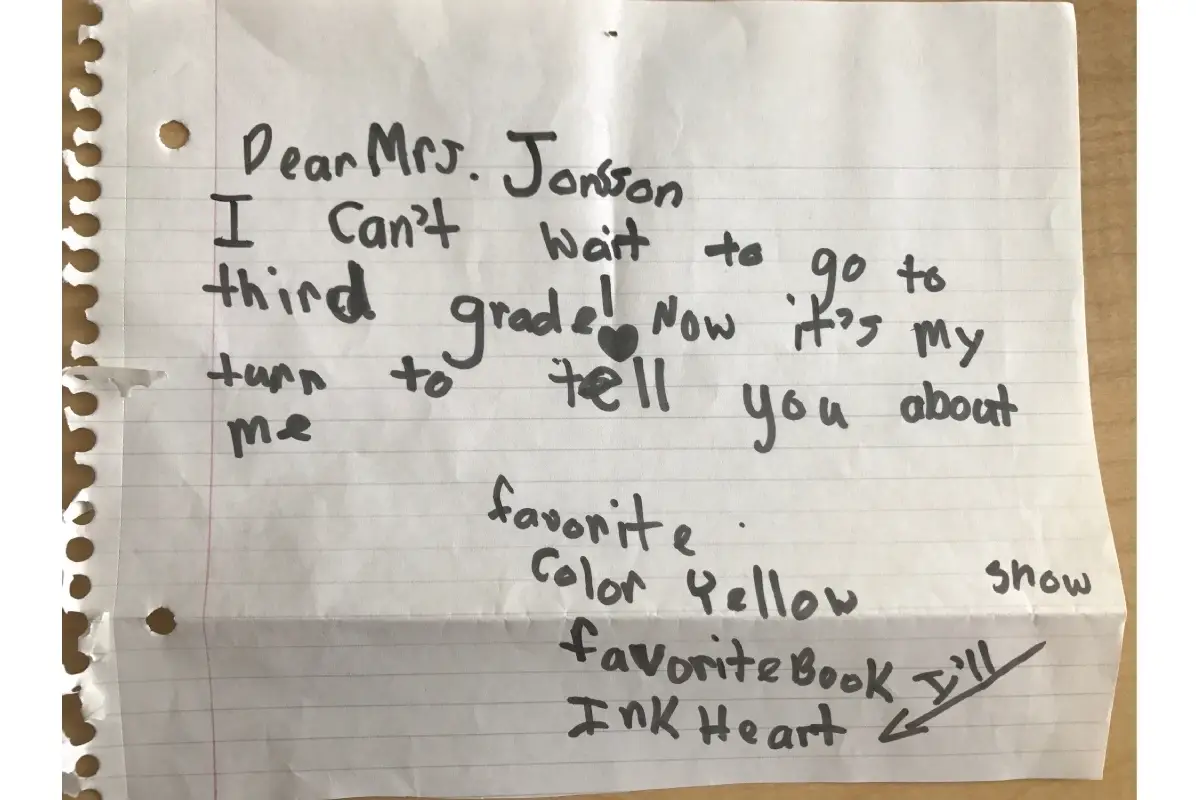 Dear Mrs. Jonsson
I Can't wait to go to
third grade! Now it's my
turn to tell you about
me
favorite
Color Yellow
show
favorite Book I'll
Ink Heart